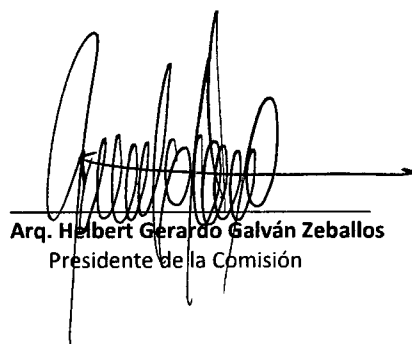 Arq. Helbert Gerardo Galván Zeballos
Presidente de la Comisión